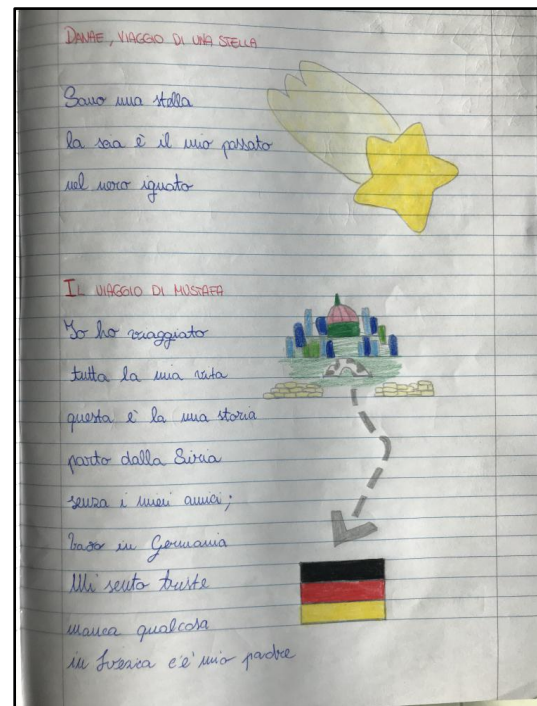 DANAE, VIAGGIO DI UNA STELLA
Sono una stella
la scia è il mio passato
nel nero ignoto
IL VIAGGIO DI MUSTAFA
Io ho viaggiato
tutta la mia vita
questa è la mia storia
parto dalla Siria
senza i miei amici;
in Germania
Mi sento triste
manca qualcosa
in Svezia c'è mio padre